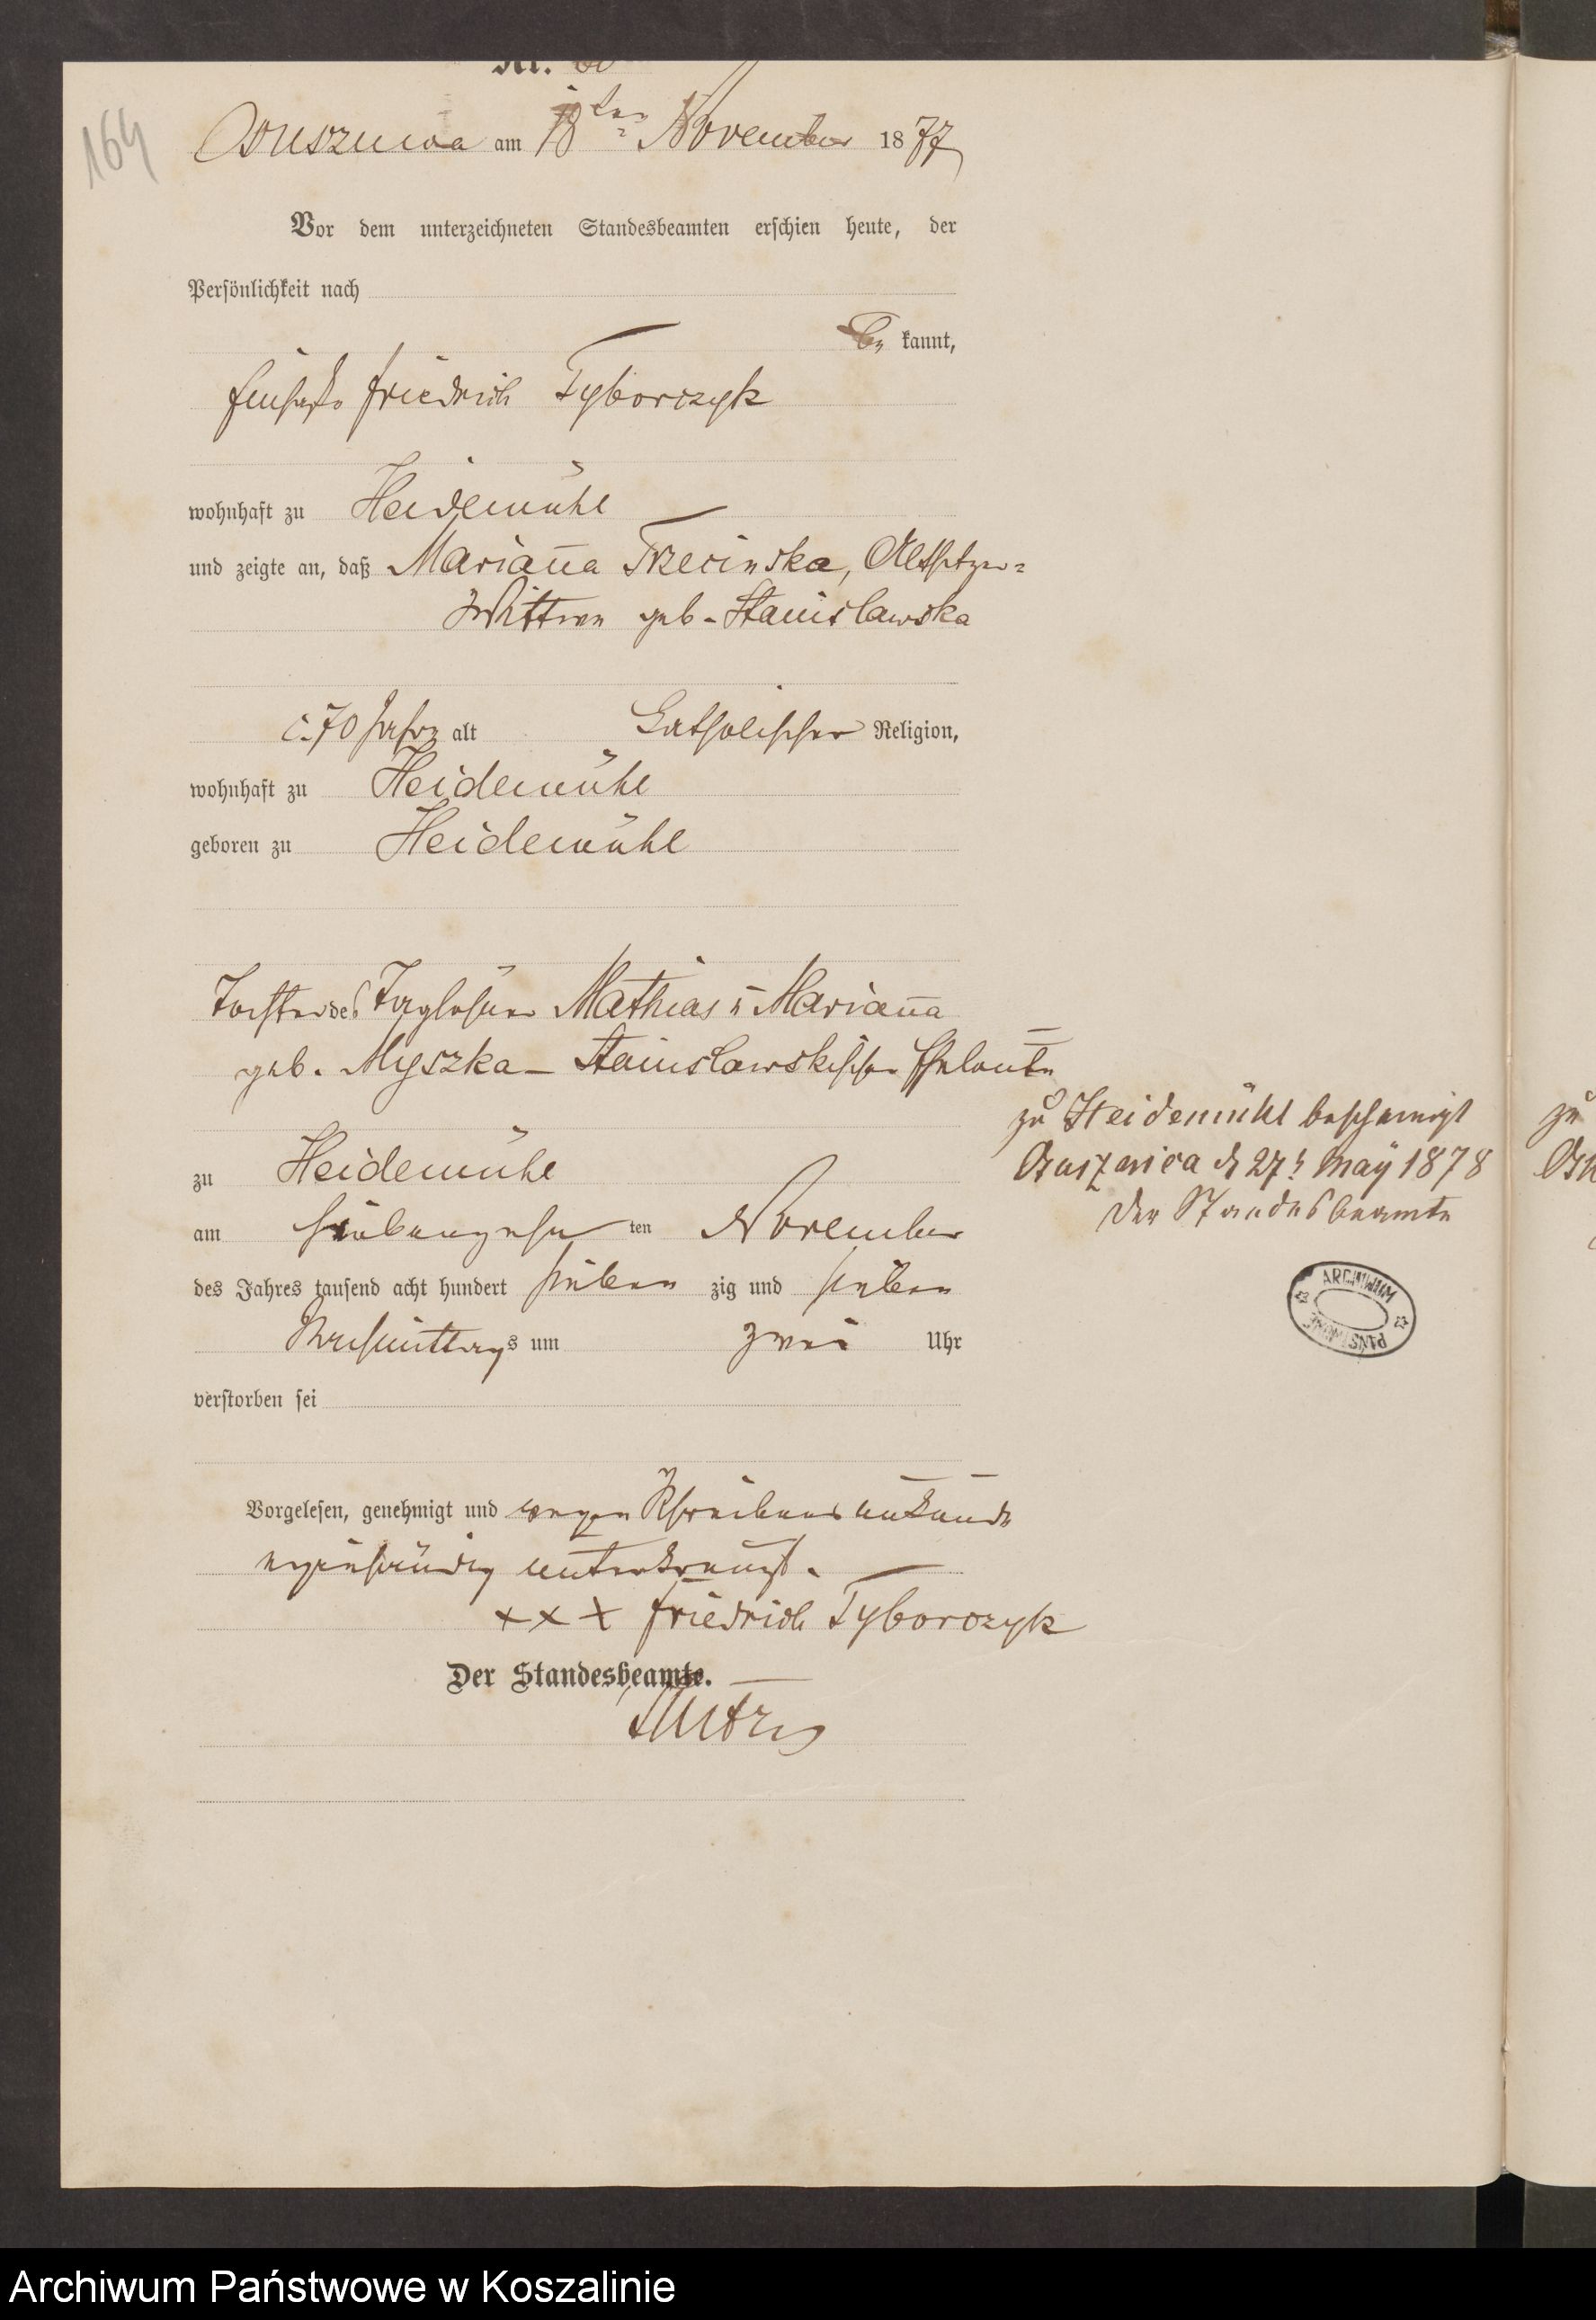 164
Nr.
Osuszniza am 18ten November 1877
Vor dem unterzeichneten Standesbeamten erschien heute, der
Persönlichkeit nach
be kannt,
Friedrich Tyborczyk
wohnhaft zu Heidemühl
und zeigte an, daß Mariana Trzecinska, Altsitzer-
Wittwe geb. Stanislawska
c. 70 Jahre alt Catholischer Religion,
wohnhaft zu Heidemühl
geboren zu Heidemühl
Tochter des Taglöhner Mathias u Mariana
geb. Myszka - Stanislawskischen Eheleute
zu Heidemühl bescheinigt
Osusznica d 27t May 1878
Der Standesbeamte
zu Heidemühl
am siebenzehn ten November
des Jahres tausend acht hundert sieben zig und sieben
Nachmittags um zwei Uhr
verstorben sei
Vorgelesen, genehmigt und wegen Schreibens unkunde
eigenhändig unterkreuzt.
xxx Friedrich Tyborczyk
Der Standesbeamte.
zu
ARCHIWUM PAŃSTWOWE
Archiwum Państwowe w Koszalinie